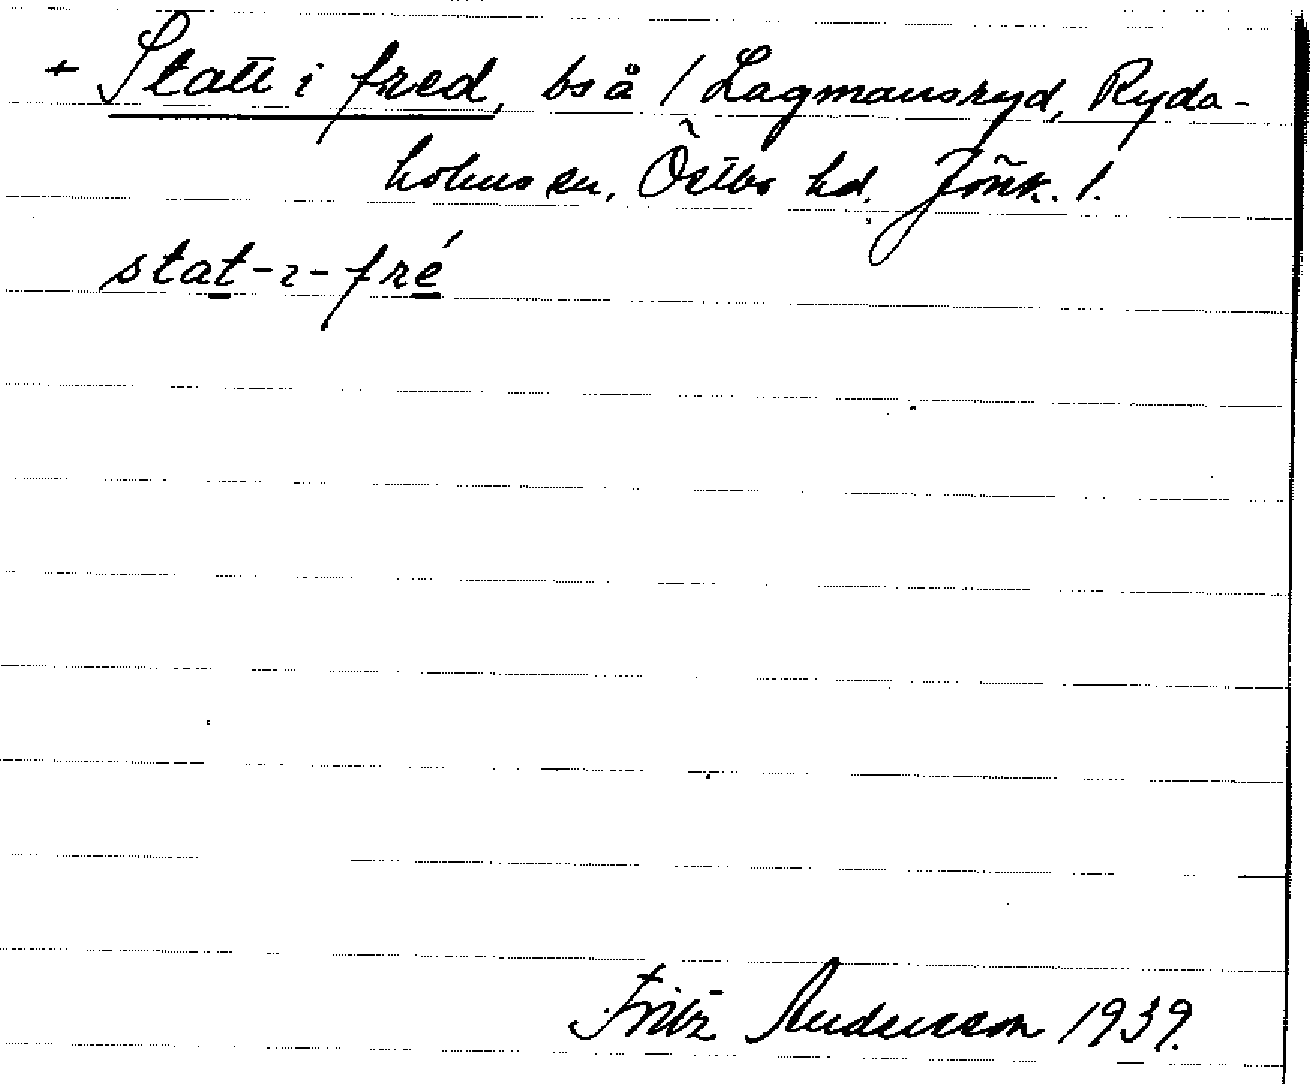 + Statt i fred, bs å / Lagmansryd, Ryda-
holms sn, Östbo hd. Jönk. l.
stat-ı-fré
Fritz Andersson 1939.